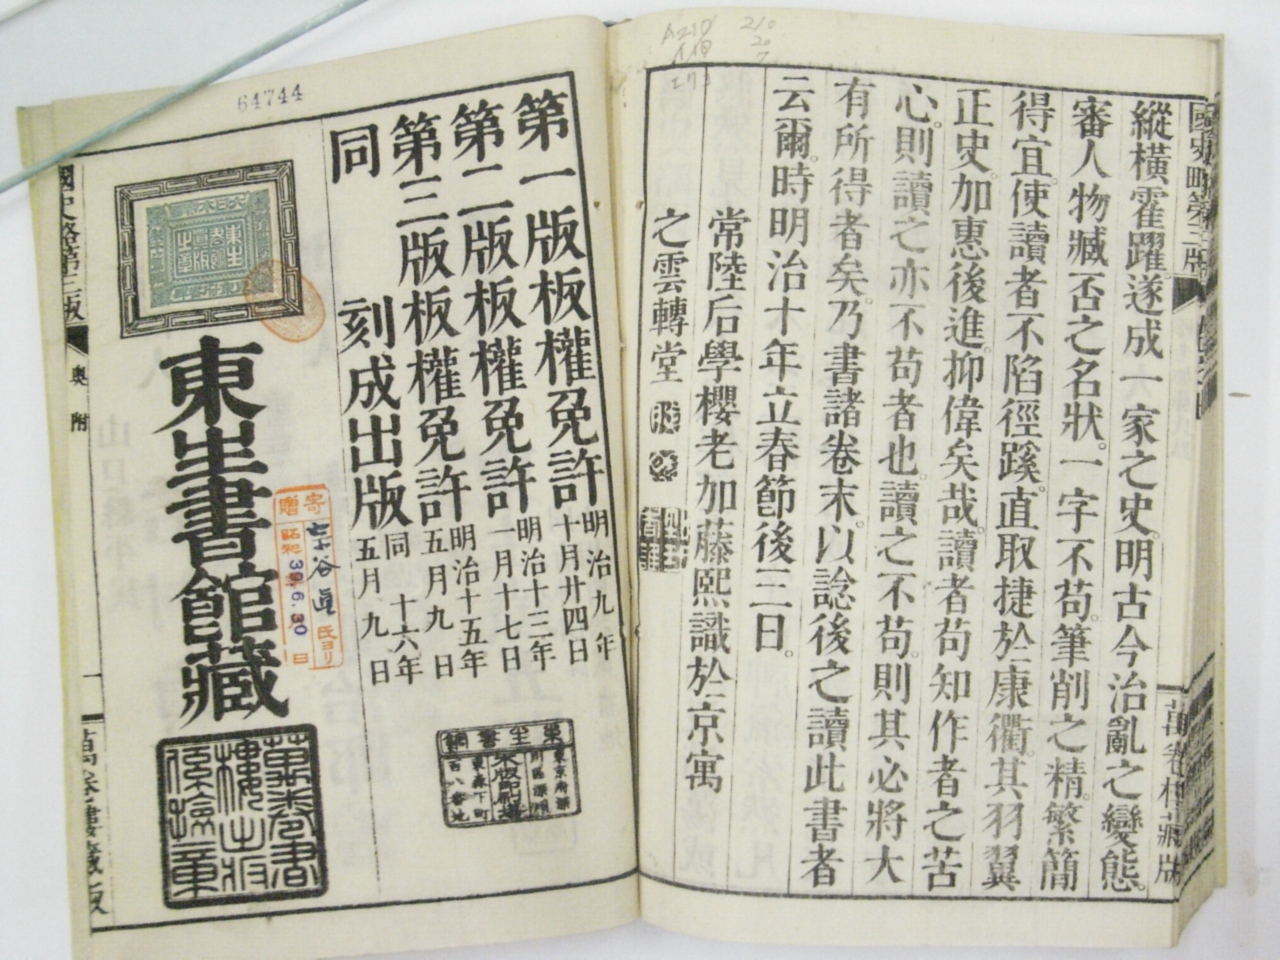 國史略第三版
萬卷樓藏版
縱橫霍躍。遂成一家之史。明古今治亂之變態。
審人物臧否之名狀。一字不苟。筆削之精。繁簡
得宜。使讀者不陷徑蹊。直取捷於康衢。其羽翼
正史。加惠後進。抑偉矣哉。讀者苟知作者之苦
心。則讀之亦不苟者也。讀之不苟。則其必將大
有所得者矣。乃書諸卷末。以諗後之讀此書者
云爾。時明治十年立春節後三日。
常陸后學櫻老加藤熙識於京寓
之雲轉堂
第一版板權免許 明治九年十月廿四日
第二版板權免許 明治十三年一月十七日
第三版板權免許 明治十五年五月九日
同 刻成出版 同十六年五月九日
東生書館藏
國史略第三版
奧附
一
萬卷樓藏版
64744
寄贈
昭和39.6.30日
氏ヨリ
210
20
7